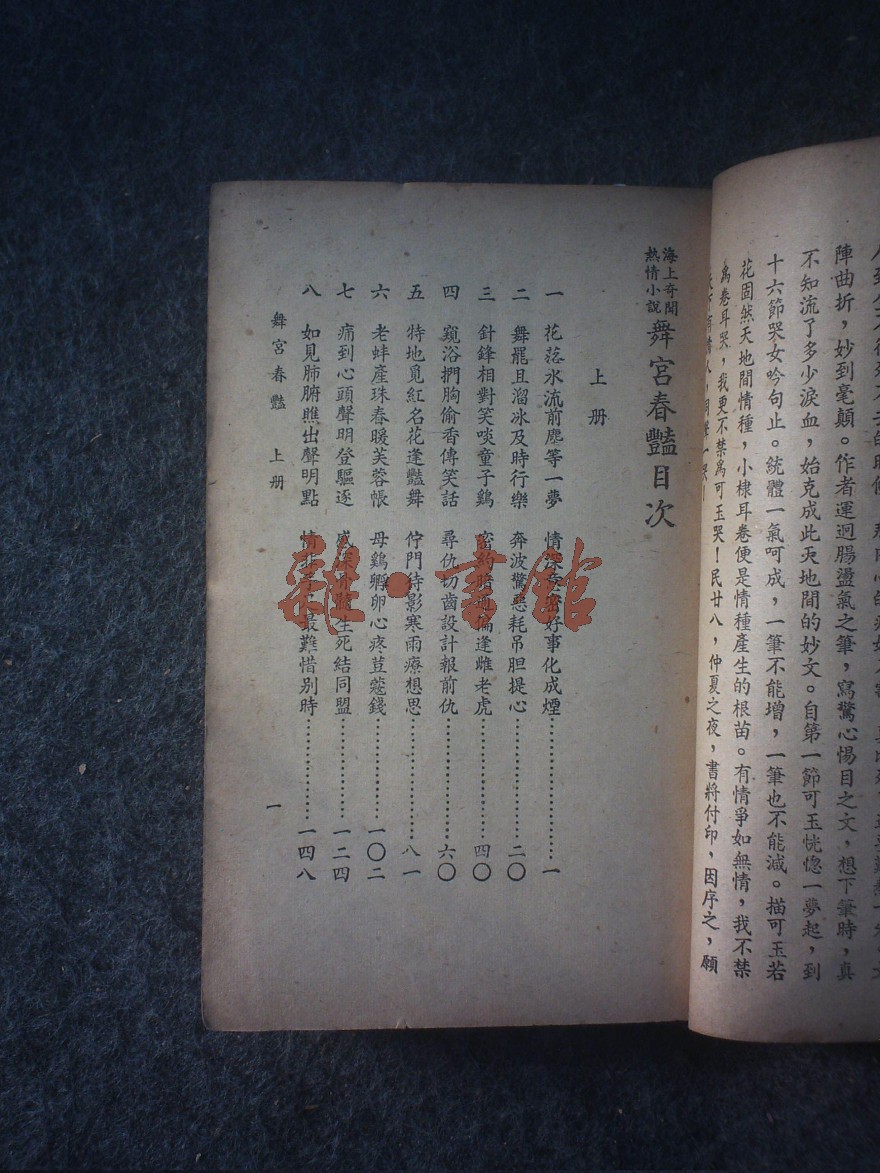 陣曲折，妙到毫顛。作者運迴腸盪氣之筆，寫驚心惕目之文，想下筆時，真
不知流了多少淚血，始克成此天地間的妙文。自第一節可玉恍惚一夢起，到
十六節哭女吟句止。統體一氣呵成，一筆不能增，一筆也不能減。描可玉若
花固然天地間情種，小棣耳卷便是情種產生的根苗。有情爭如無情，我不禁
為卷耳哭，我更不禁為可玉哭！民廿八，仲夏之夜，書將付印，因序之，願
海上奇聞
熱情小說
舞宮春豔目次
上册
一 花蕊水流前塵等一夢 情深 密好事化成煙 一
二 舞罷且溜冰及時行樂 奔波驚惡耗吊胆提心 二〇
三 針鋒相對笑啖童子鷄 密約 逢雌老虎 四〇
四 窺浴捫胸偷香傳笑話 尋仇切齒設計報前仇 六〇
五 特地覓紅名花逢豔舞 佇門待影寒雨療想思 八一
六 老蚌產珠春暖芙蓉帳 母鷄孵卵心疼荳蔻錢 一〇二
七 痛到心頭聲明登驅逐 生死結同盟 一二四
八 如見肺腑瞧出聲明點 情非 最難惜別時 一四八
舞宮春豔 上册
一
雜·書館